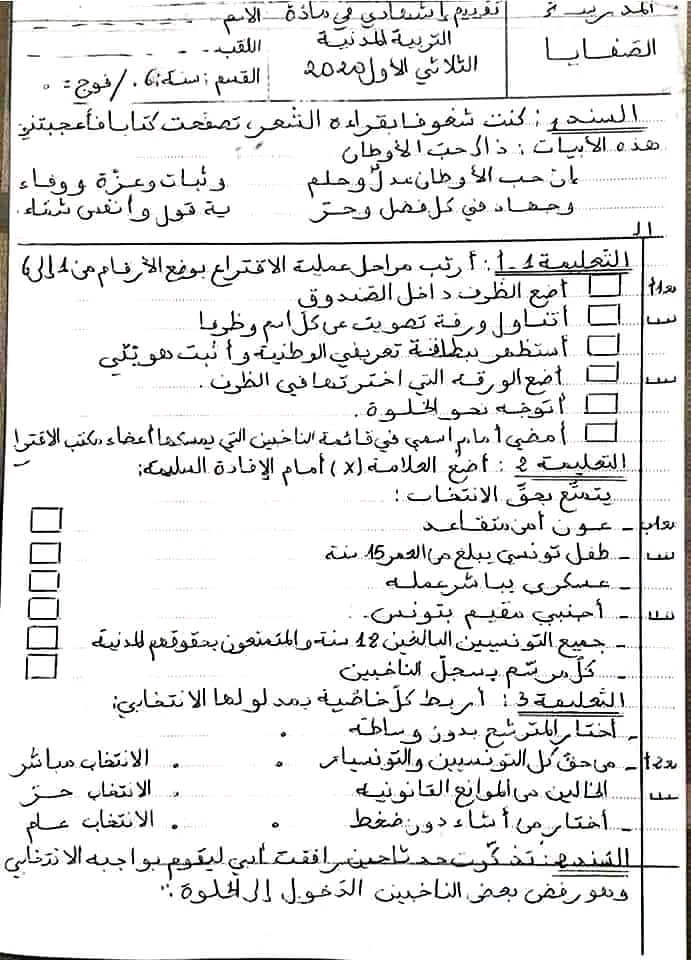 المدرسة
الصفايا
تقييم إشهادي في مادة
التربية المدنية
الثلاثي الأول 2020
الاسم
اللقب
القسم : سنة 6 / فوج = ه
السند 1 : كنت شغوفا بقراءة الشعر، تصفحت كتابا فأعجبتني
هذه الأبيات : ذاك حب الأوطان
إن حب الأوطان عدل وحلم وثبات وعزة ووفاء
وجهاد في كل فضل وحر ية قول وأنفس شماء
التعليمة 1 - 1 : أرتب مراحل عملية الاقتراع بوضع الأرقام من 1 إلى 6
مع 1 أ
أضع الظرف داخل الصندوق
أتناول ورقة تصويت عن كل اسم وظرفا
أستظهر ببطاقة تعريفي الوطنية وأثبت هويتي
أضع الورقة التي اخترتها في الظرف .
أتوجه نحو الخلوة .
أمضي أمام اسمي في قائمة الناخبين التي يمسكها أعضاء مكتب الاقترا
التعليمة 2 : أضع العلامة (x) أمام الإفادة السليمة:
يتمتع بحق الانتخاب :
مع 1 ب
- عون أمن متقاعد
- طفل تونسي يبلغ من العمر 15 سنة
- عسكري يباشر عمله
- أجنبي مقيم بتونس .
- جميع التونسيين البالغين 18 سنة والمتمتعون بحقوقهم المدنية
- كل مرسم بسجل الناخبين
التعليمة 3 : أربط كل خاصية بمدلولها الانتخابي:
- أختار المترشح بدون وساطة .
مع 2 أ
- من حق كل التونسيين والتونسيات . . الانتخاب مباشر
الخالين من الموانع القانونية . الانتخاب حر
- أختار من أشاء دون ضغط . . الانتخاب عام
السند 2 : تذكرت حدثا حين رافقت أبي ليقوم بواجبه الانتخابي
وهو رفض بعض الناخبين الدخول إلى الخلوة .